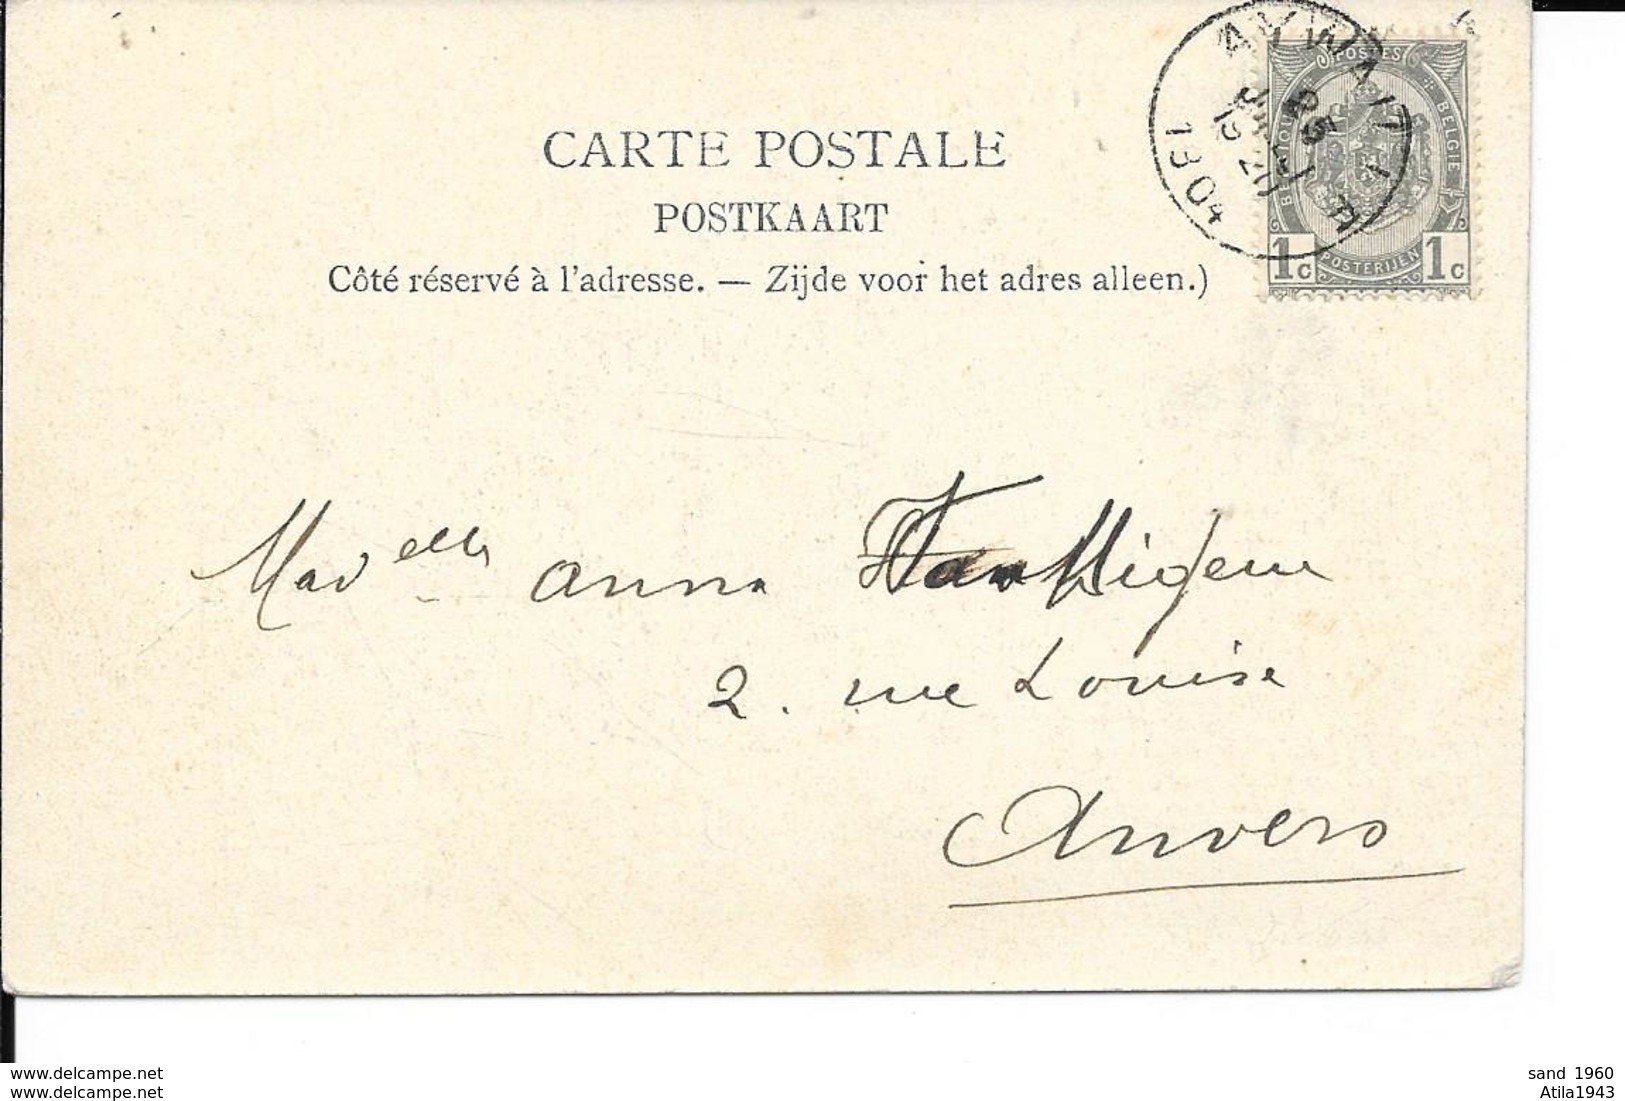 CARTE POSTALE
POSTKAART
Côté réservé à l'adresse. — Zijde voor het adres alleen.)
AYWAILLE
25
1904
POSTES
BELGIQUE BELGIE
1c POSTERIJEN 1c
Madelle anna
2. rue Louise
Anvers
www.delcampe.net
www.delcampe.net
sand 1960
Atila1943